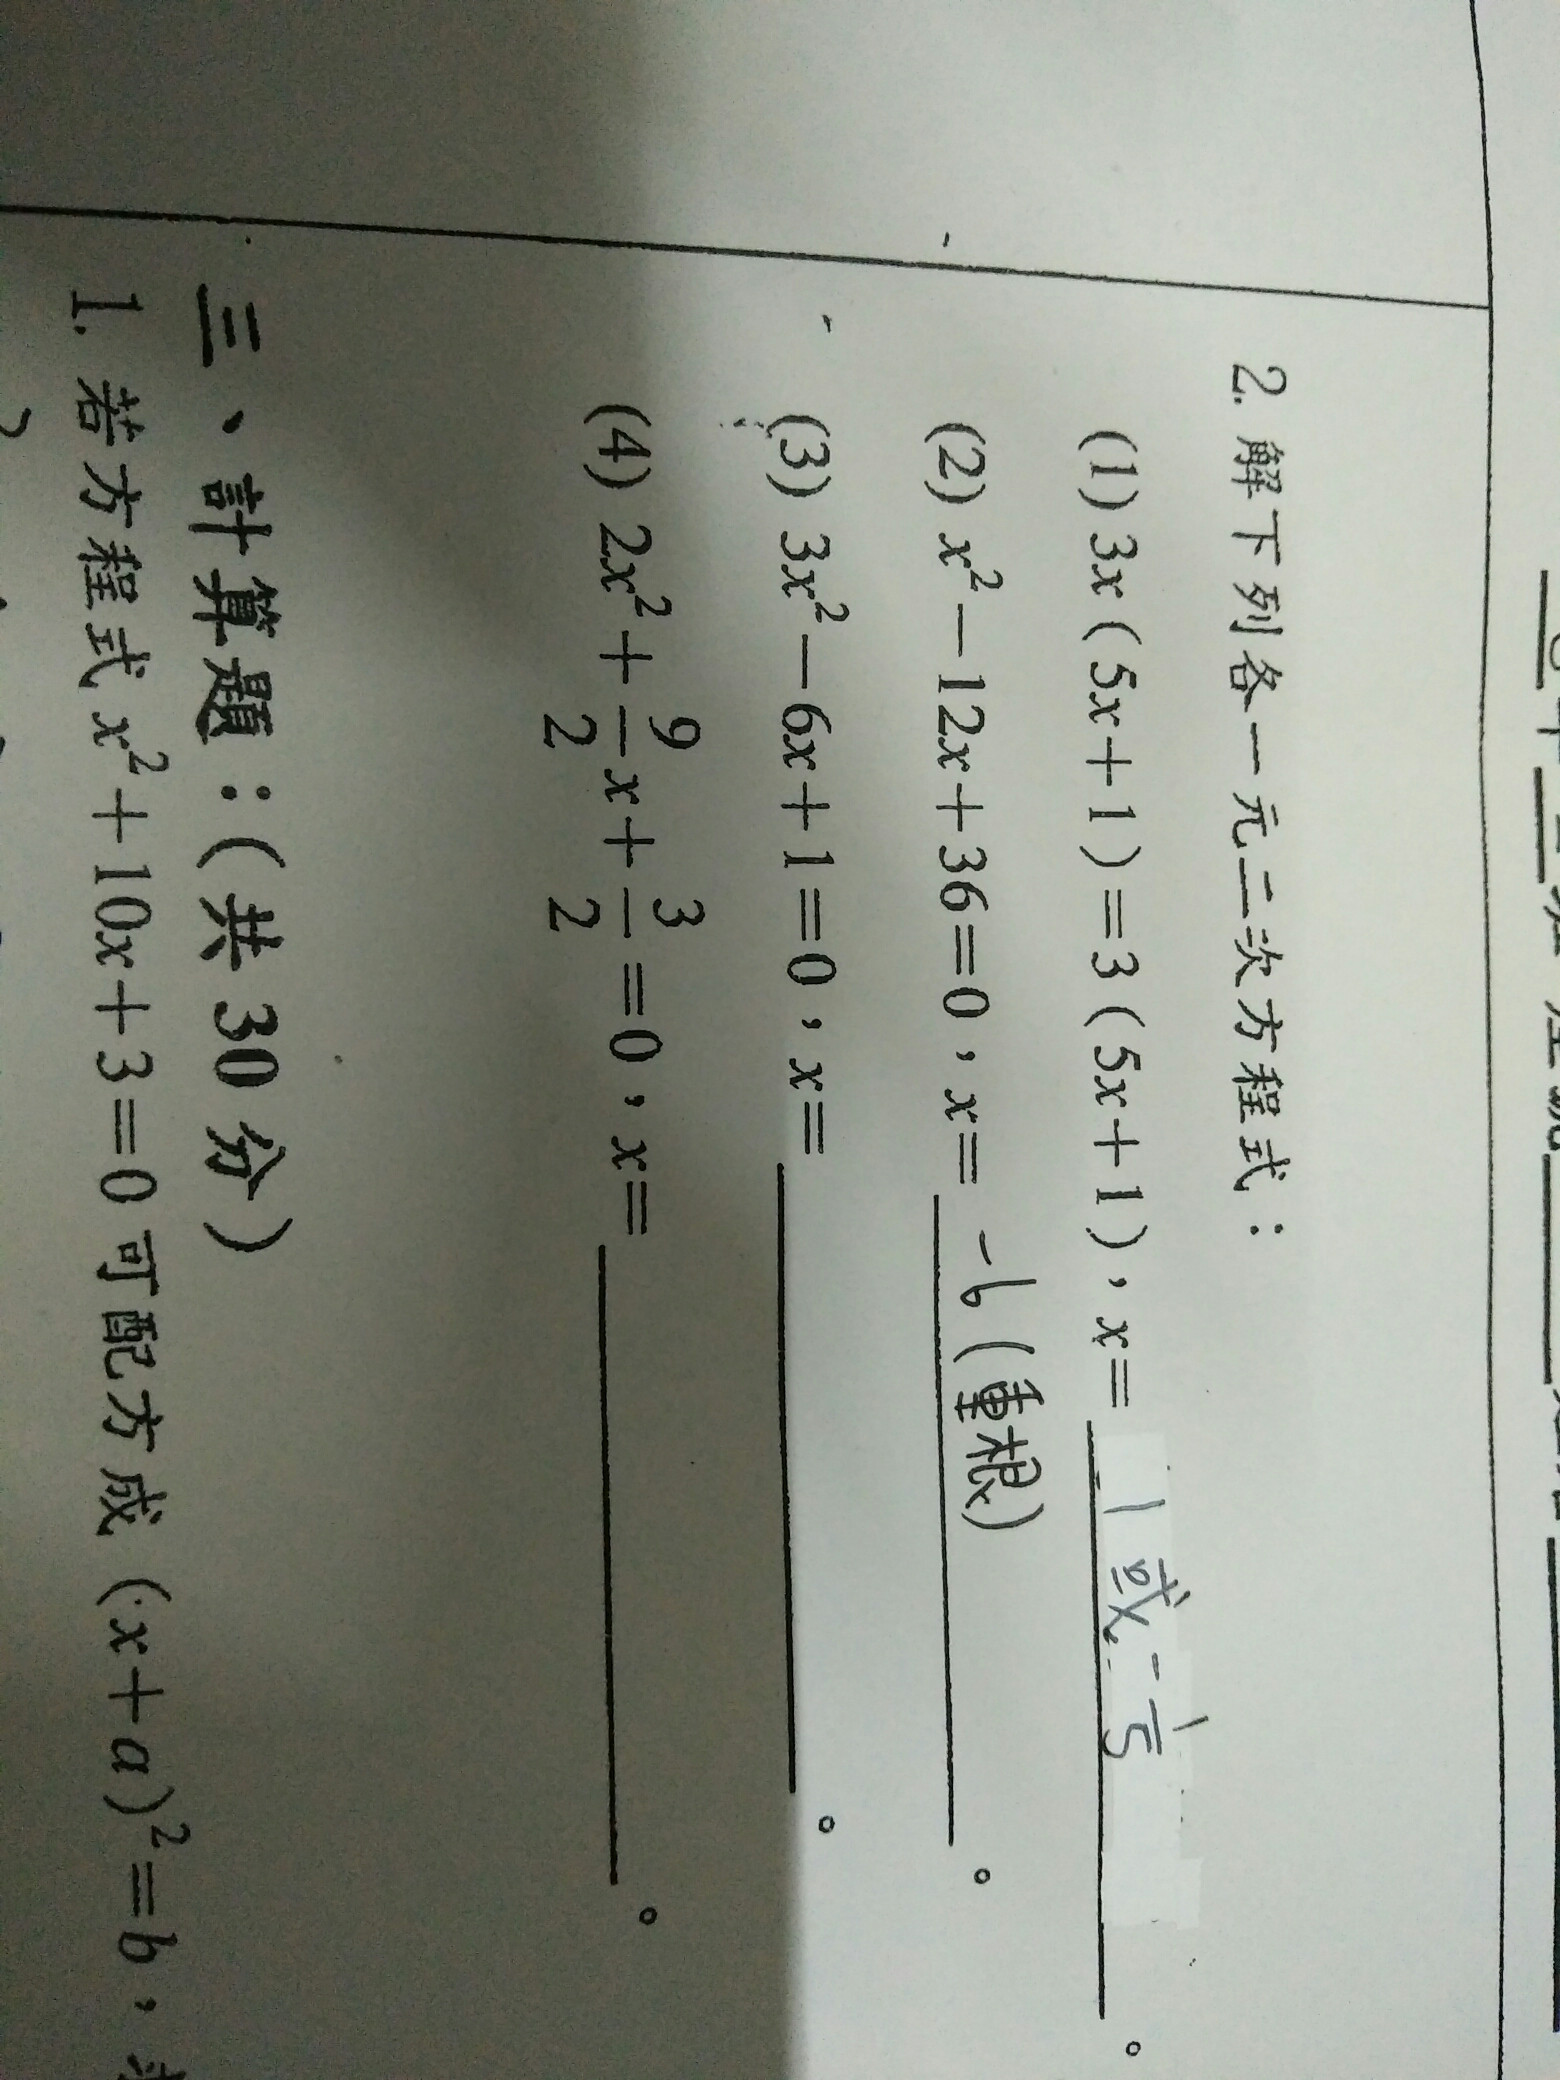 2. 解下列各一元二次方程式：
(1) 3x(5x+1)=3(5x+1)，x= 1 或 -1/5 。
(2) x²-12x+36=0，x= -6 (重根) 。
(3) 3x²-6x+1=0，x= 。
(4) 2x²+9/2x+3/2=0，x= 。
三、計算題：(共 30 分)
1. 若方程式 x²+10x+3=0 可配方成 (x+a)²=b，